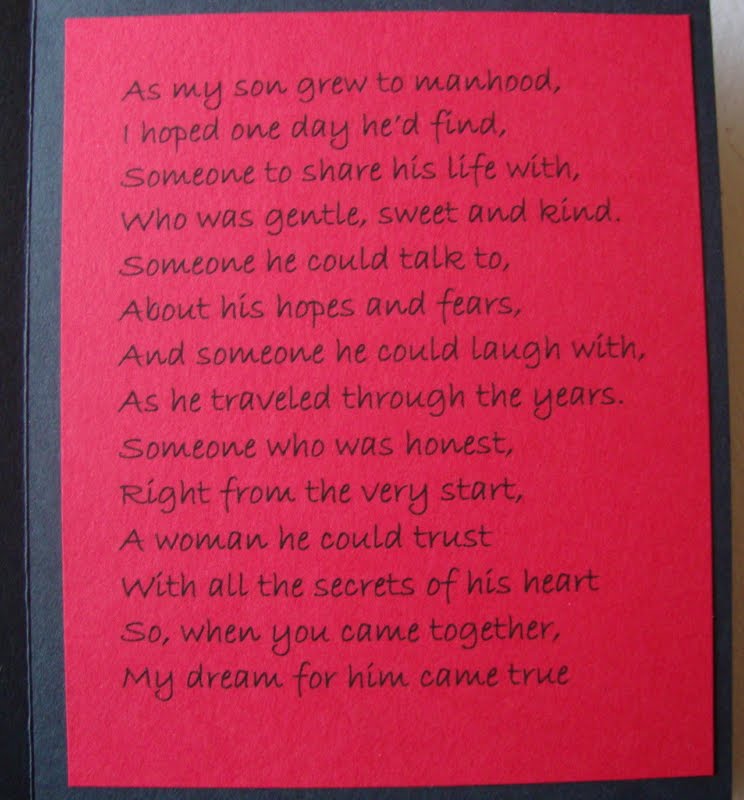 As my son grew to manhood,
I hoped one day he'd find,
Someone to share his life with,
Who was gentle, sweet and kind.
Someone he could talk to,
About his hopes and fears,
And someone he could laugh with,
As he traveled through the years.
Someone who was honest,
Right from the very start,
A woman he could trust
With all the secrets of his heart
So, when you came together,
My dream for him came true